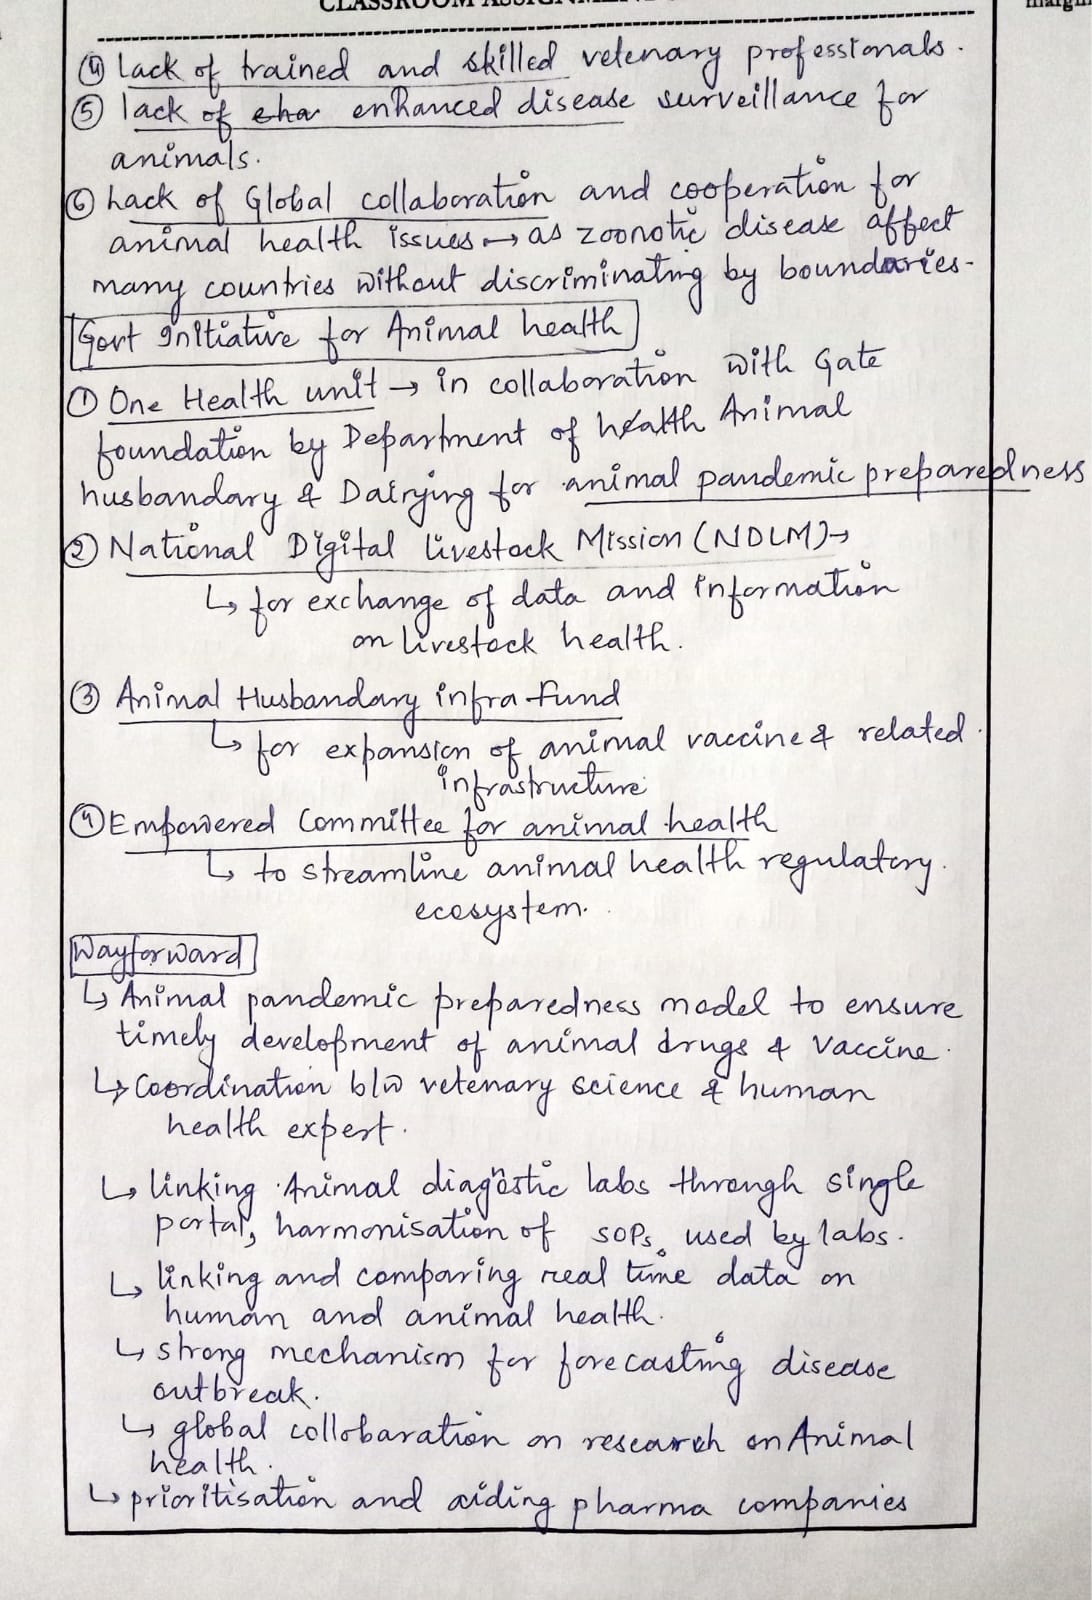 ④ Lack of trained and skilled vetenary professionals.
⑤ lack of enhanced disease surveillance for
animals.
⑥ Lack of Global collaboration and cooperation for
animal health issues → as zoonotic disease affect
many countries without discriminating by boundaries-
Govt Initiative for Animal health
① One Health unit → in collaboration with Gate
foundation by Department of health Animal
husbandary & Dairying for animal pandemic preparedness
② National Digital livestock Mission (NDLM) →
↳ for exchange of data and information
on livestock health.
③ Animal Husbandary infra Fund
↳ for expansion of animal vaccine & related
infrastructure
④ Empowered Committee for animal health
↳ to streamline animal health regulatory
ecosystem.
Wayforward
↳ Animal pandemic preparedness model to ensure
timely development of animal drugs & vaccine.
↳ Coordination b/w vetenary science & human
health expert.
↳ linking Animal diagnostic labs through single
portal, harmonisation of SOPs used by labs.
↳ linking and comparing real time data on
human and animal health.
↳ strong mechanism for forecasting disease
outbreak.
↳ global collobaration on research on Animal
health.
↳ prioritisation and aiding pharma companies